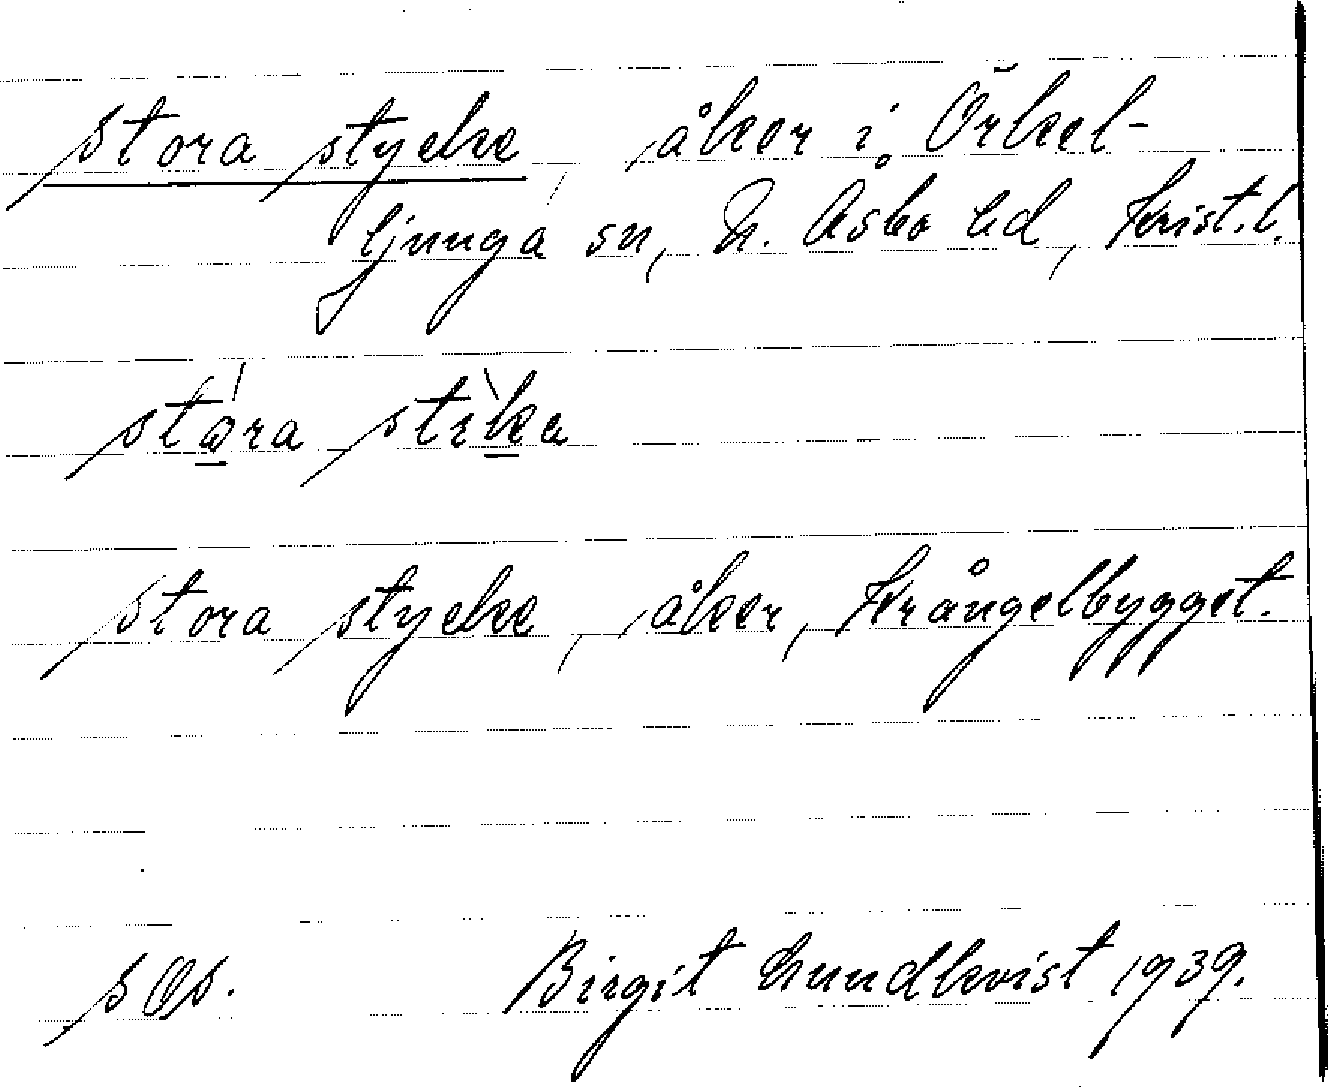 stora stycke, åker i Örkel-
ljunga sn, N. Åsbo hd, Krist.l.
stora stika
stora stycke, åker, Krångelbygget.
Birgit Lundkvist 1939.